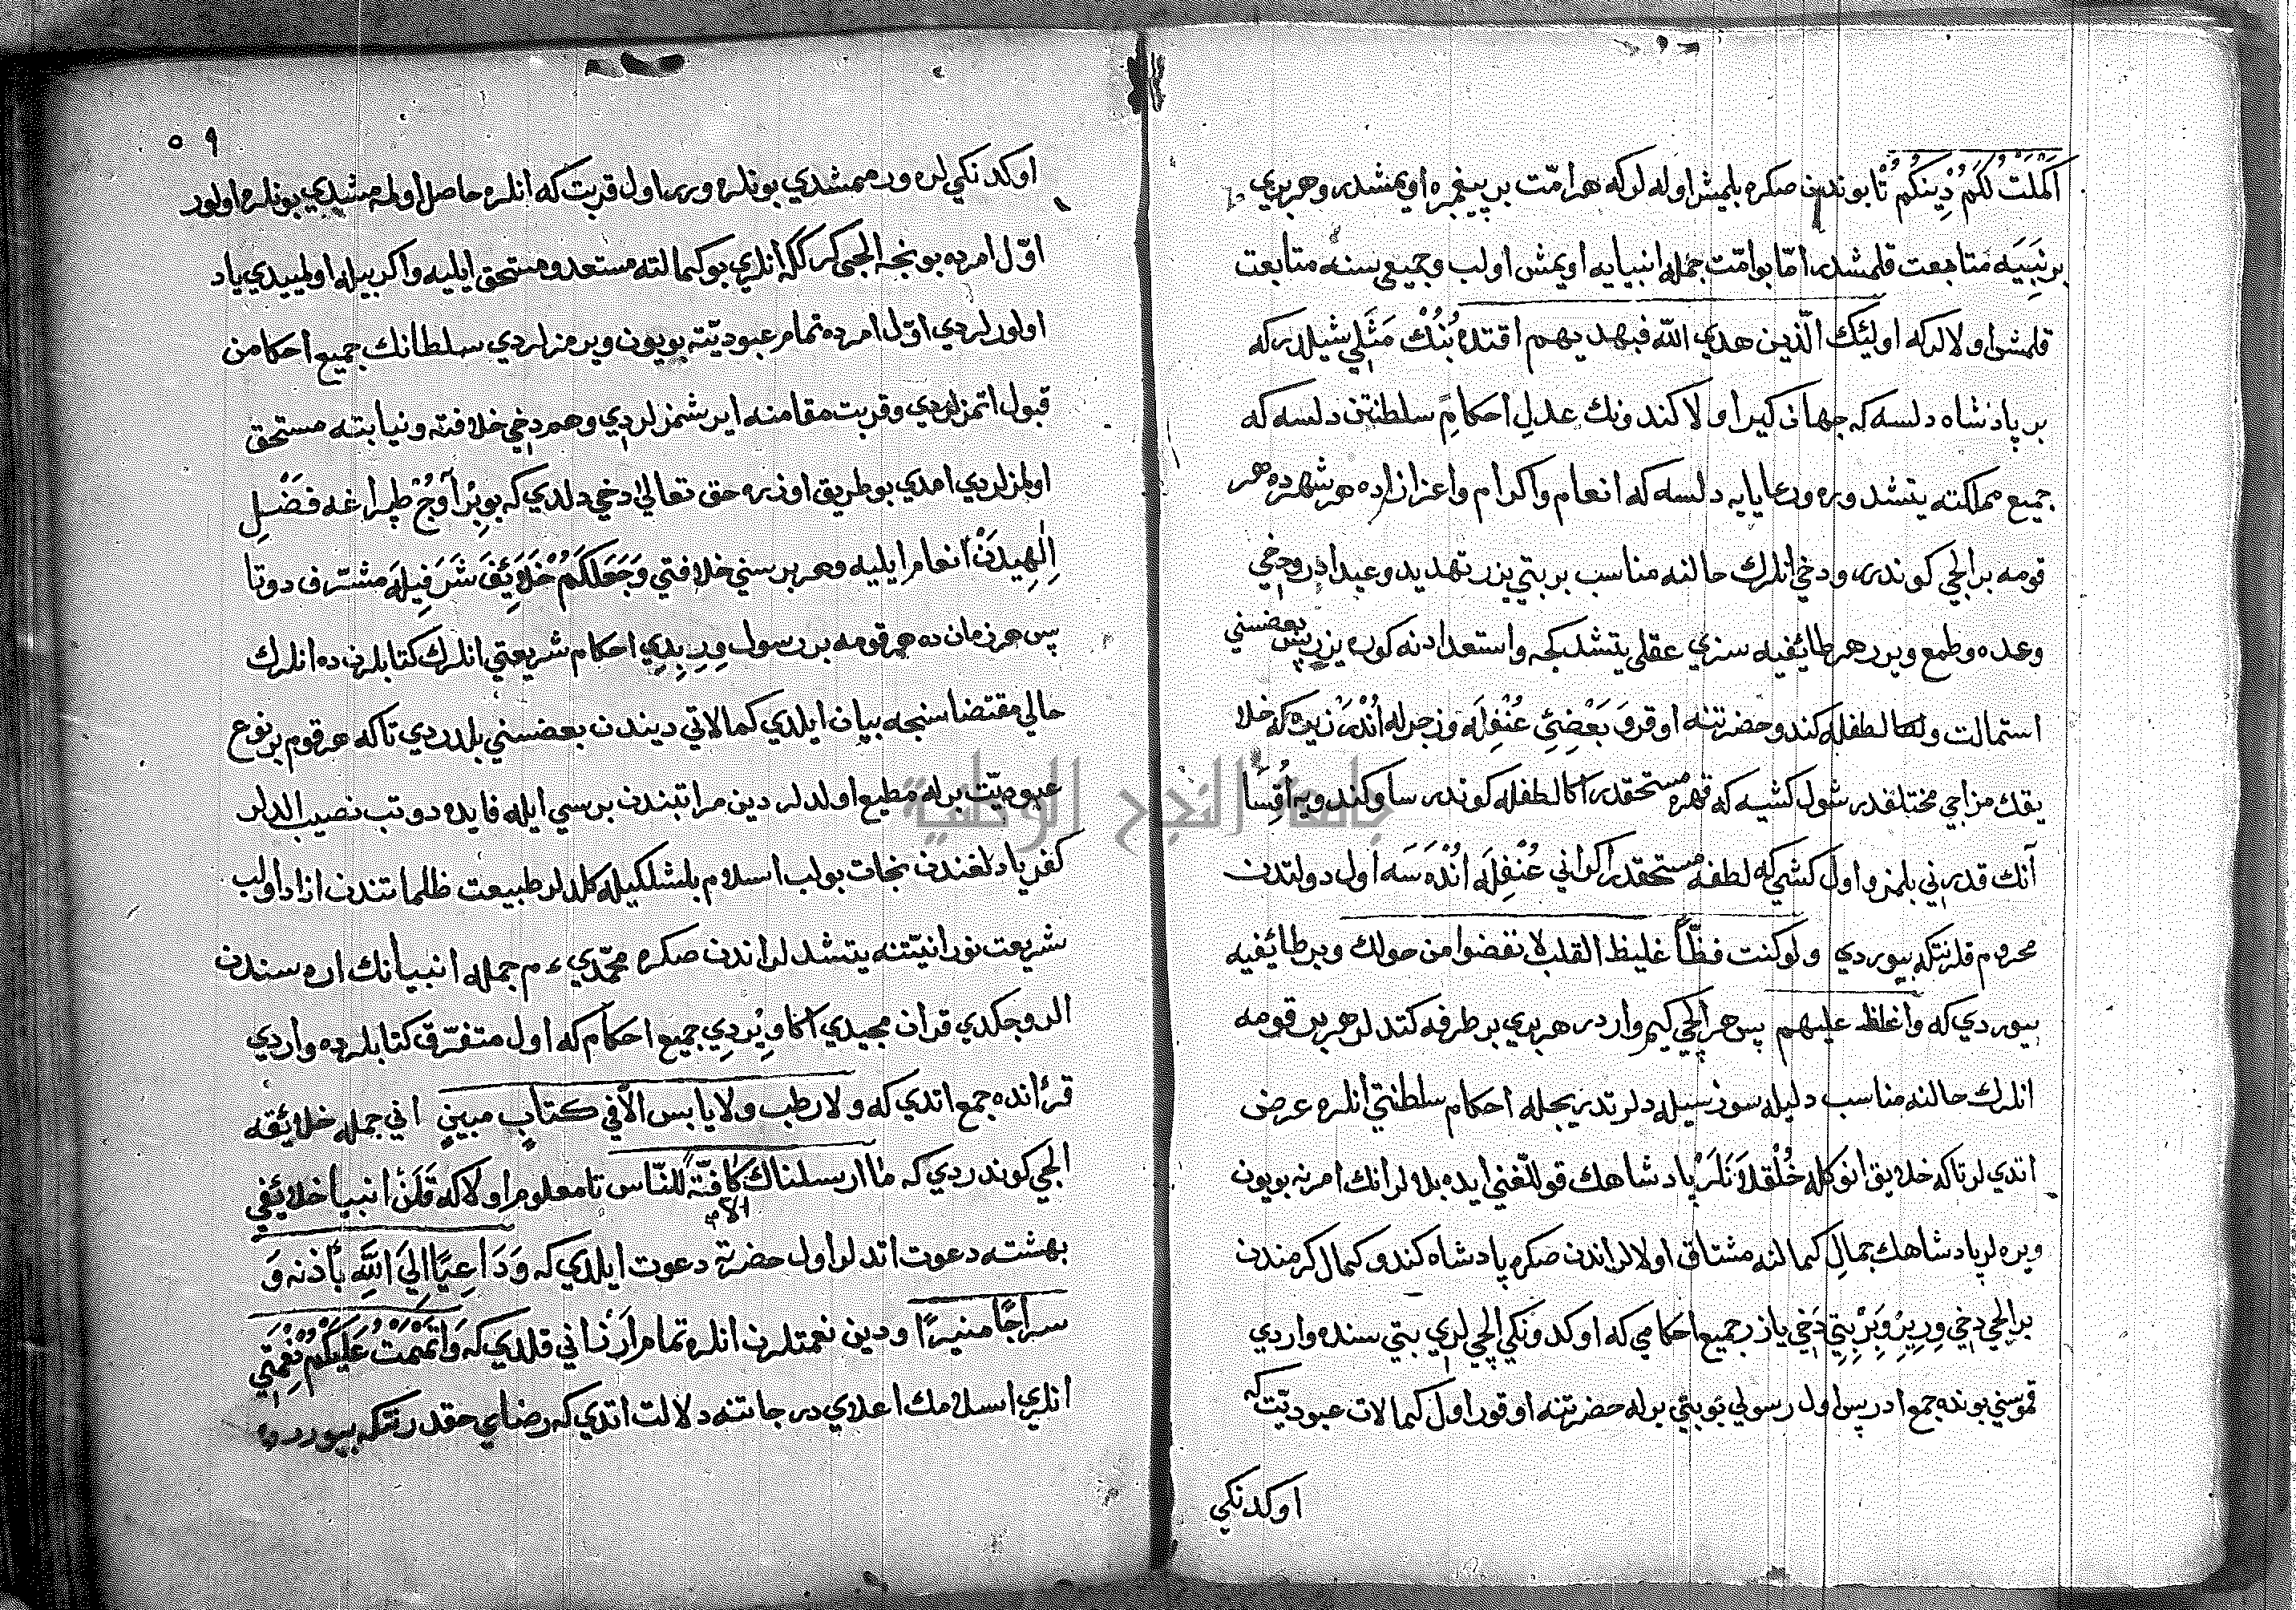 اَكْمَلْتُ لَكُمْ دِينَكُمْ تا بوندن صكره بلمیش اوله لر كه هر امّت بر پیغمبره اویمشدر وهر بري
بر نَبِيَه متابعت قلمشدر امّا بو امّت جمله انبیایه اویمش اولب وجمیع سنه متابعت
قلمش اولالر كه اولئك الّذین هدي اللّه فبهدیهم اقتده بُنُكْ مَثَلِي شیلدر كه
بر پادشاه دلسه كه جهان كیر اولا كندونك عدلِ احكامِ سلطنتن دلسه كه
جمیع مملكته یتشدوره ورعایایه دلسه كه انعام واكرام واعزاز اده هر شهرده هر
قومه بر الجي كوندرر ودخي انلرك حالنه مناسب بر بتي یزر تهدید وعید ادر ودخي
وعده وطمع ویرر هر طائفیه سزي عقلي یتشدكجه واستعدادنه كوره یزر پس بعضسني
استمالت ولطفله كندو حضرتنه اوقر وَ بَعْضِيْي عُنْفِلَه وزجرله اُنْدَرْ زیره كه خلا
یقك مزاجي مختلفدر شول كشیه كه قهره مستحقدر اكا لطفله كوندرسا وكندویه اُقِسَا
آنك قدرني بلمز و اول كشي كه لطفه مستحقدر اكر اني عُنْفِلَه اُنْدَسَه اول دولتدن
محروم قلر نتكه بیوردي ولو كنت فظّاً غلیظ القلب لا نفضوا من حولك وبر طائفیه
بیوردي كه واغلظ علیهم پس هر الجي كیم واردر هر بري بر طرفه كتدلر هر بر قومه
انلرك حالنه مناسب دلیله سوز سیله دلر تدریجله احكام سلطنتي انلره عرض
اتدي لر تاكه خلایق انوكله خُلْقلَانَلَرْ پادشاهك قوللّغني ایده بلالر انك امرنه بویون
ویره لر پادشاهك جمالِ كمالنه مشتاق اولالر اندن صكره پادشاه كندو كمال كرمندن
بر الجي دخي وِرِیِرْ وَبَرْ بِتِي دَخِي یازر جمیع احكامي كه اوكدونكي الچي لري بتي سنده واردي
قموسني بونده جمع ادر پس اول رسولي بو بتي برله حضرتنه اوقور اول كمالات عبودیّت كه
اوكدنكي
٥٩
اوكدنكي لره ورممشدي بونلره ورر اول قربت كه انلره حاصل اولمه مشیدي بونلره اولور
اوّل امرده بونجه الجي كركلكه انلري بو كمالته مستعد ومستحق ایلیه واكر بیله اولمییدي یاد
اولورلردي اوّل امرده تمام عبودیّته بویون ویرمزلردي سلطانك جمیع احكامن
قبول اتمزلردي وقربت مقامنه ایرشمزلردي وهم دخي خلافته ونیابته مستحق
اولمزلردي امدي بو طریق اوزره حق تعالیٰ دخي دلدي كه بو بِرْ آوُجْ طپراغه فَضْلِ
اِلٰهِیدَنْ انعام ایلیه وهر برسني خلافتي وَجَعَلَكُمْ خَلَائِفَ شَرَفِیلَه مشرّف دوتا
پس هر زمان ده هر قومه بر رسول وِرِیِدِي احكام شریعتي انلرك كتابلرن ده انلرك
حالي مقتضاسنجه بیان ایلدي كمالاتي دیندن بعضسني بلدردي تاكه هر قوم بر نوع
عبودیّت برله مطیع اولدلر دین مراتبندن برسي ایله فایده دوتب نصیب الدلر
كفر یادلغندن نجات بولب اسلام بلشلكیله كلدلر طبیعت ظلماتندن ازاد اولب
شریعت نورانیّتنه یتشدلر اندن صكره محمّدي ء م جمله انبیانك اره سندن
الروجكدي قران مجیدي اكا وِیُردِي جمیع احكام كه اول متفرّق كتابلرده واردي
قرءانده جمع اتدي كه ولا رطب ولا یابس الّا في كتابٍ مبینٍ اني جمله خلایقه
الجي كوندردي كه ما ارسلناك الّا كافّةً للنّاس تا معلوم اولا كه قَلَنْ انبیا خلایقي
بهشته دعوت اتدلر اول حضرته دعوت ایلدي كه وَدَاعِیًا اِلَي اللّهِ باذنه وَ
سراجًا منیرًا و دین نعمتلرن انلره تمام ارزاني قلدي كه وَاَتْمَمْتُ عَلَیْكُمْ نِعْمَتِي
انلري اسلامك اعلاي درجاتنه دلالت اتدي كه رضاي حقدر نتكه بیوردي
جامعة النجاح الوطنية